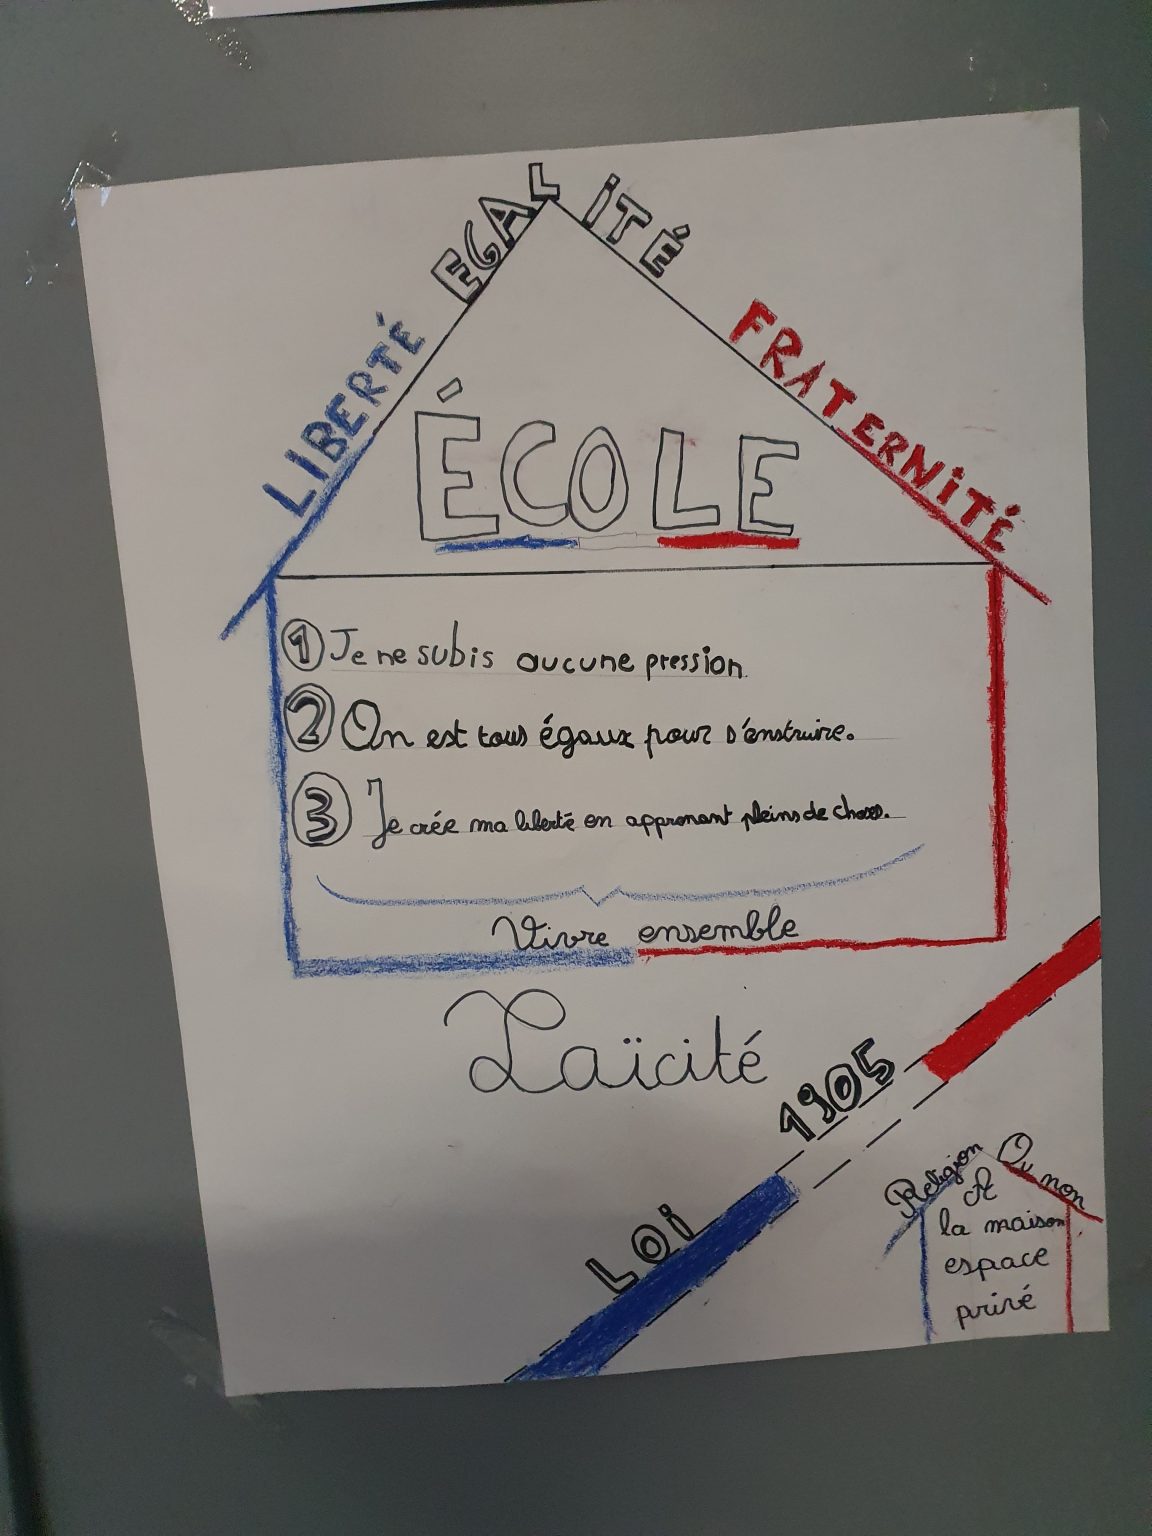 LIBERTÉ EGALITÉ FRATERNITÉ
ÉCOLE
1 Je ne subis aucune pression.
2 On est tous égaux pour s'enstruire.
3 Je crée ma liberté en apprenant pleins de choses.
Vivre ensemble
Laïcité
LOI 1905
Religion Ou non
A
la maison
espace
privé